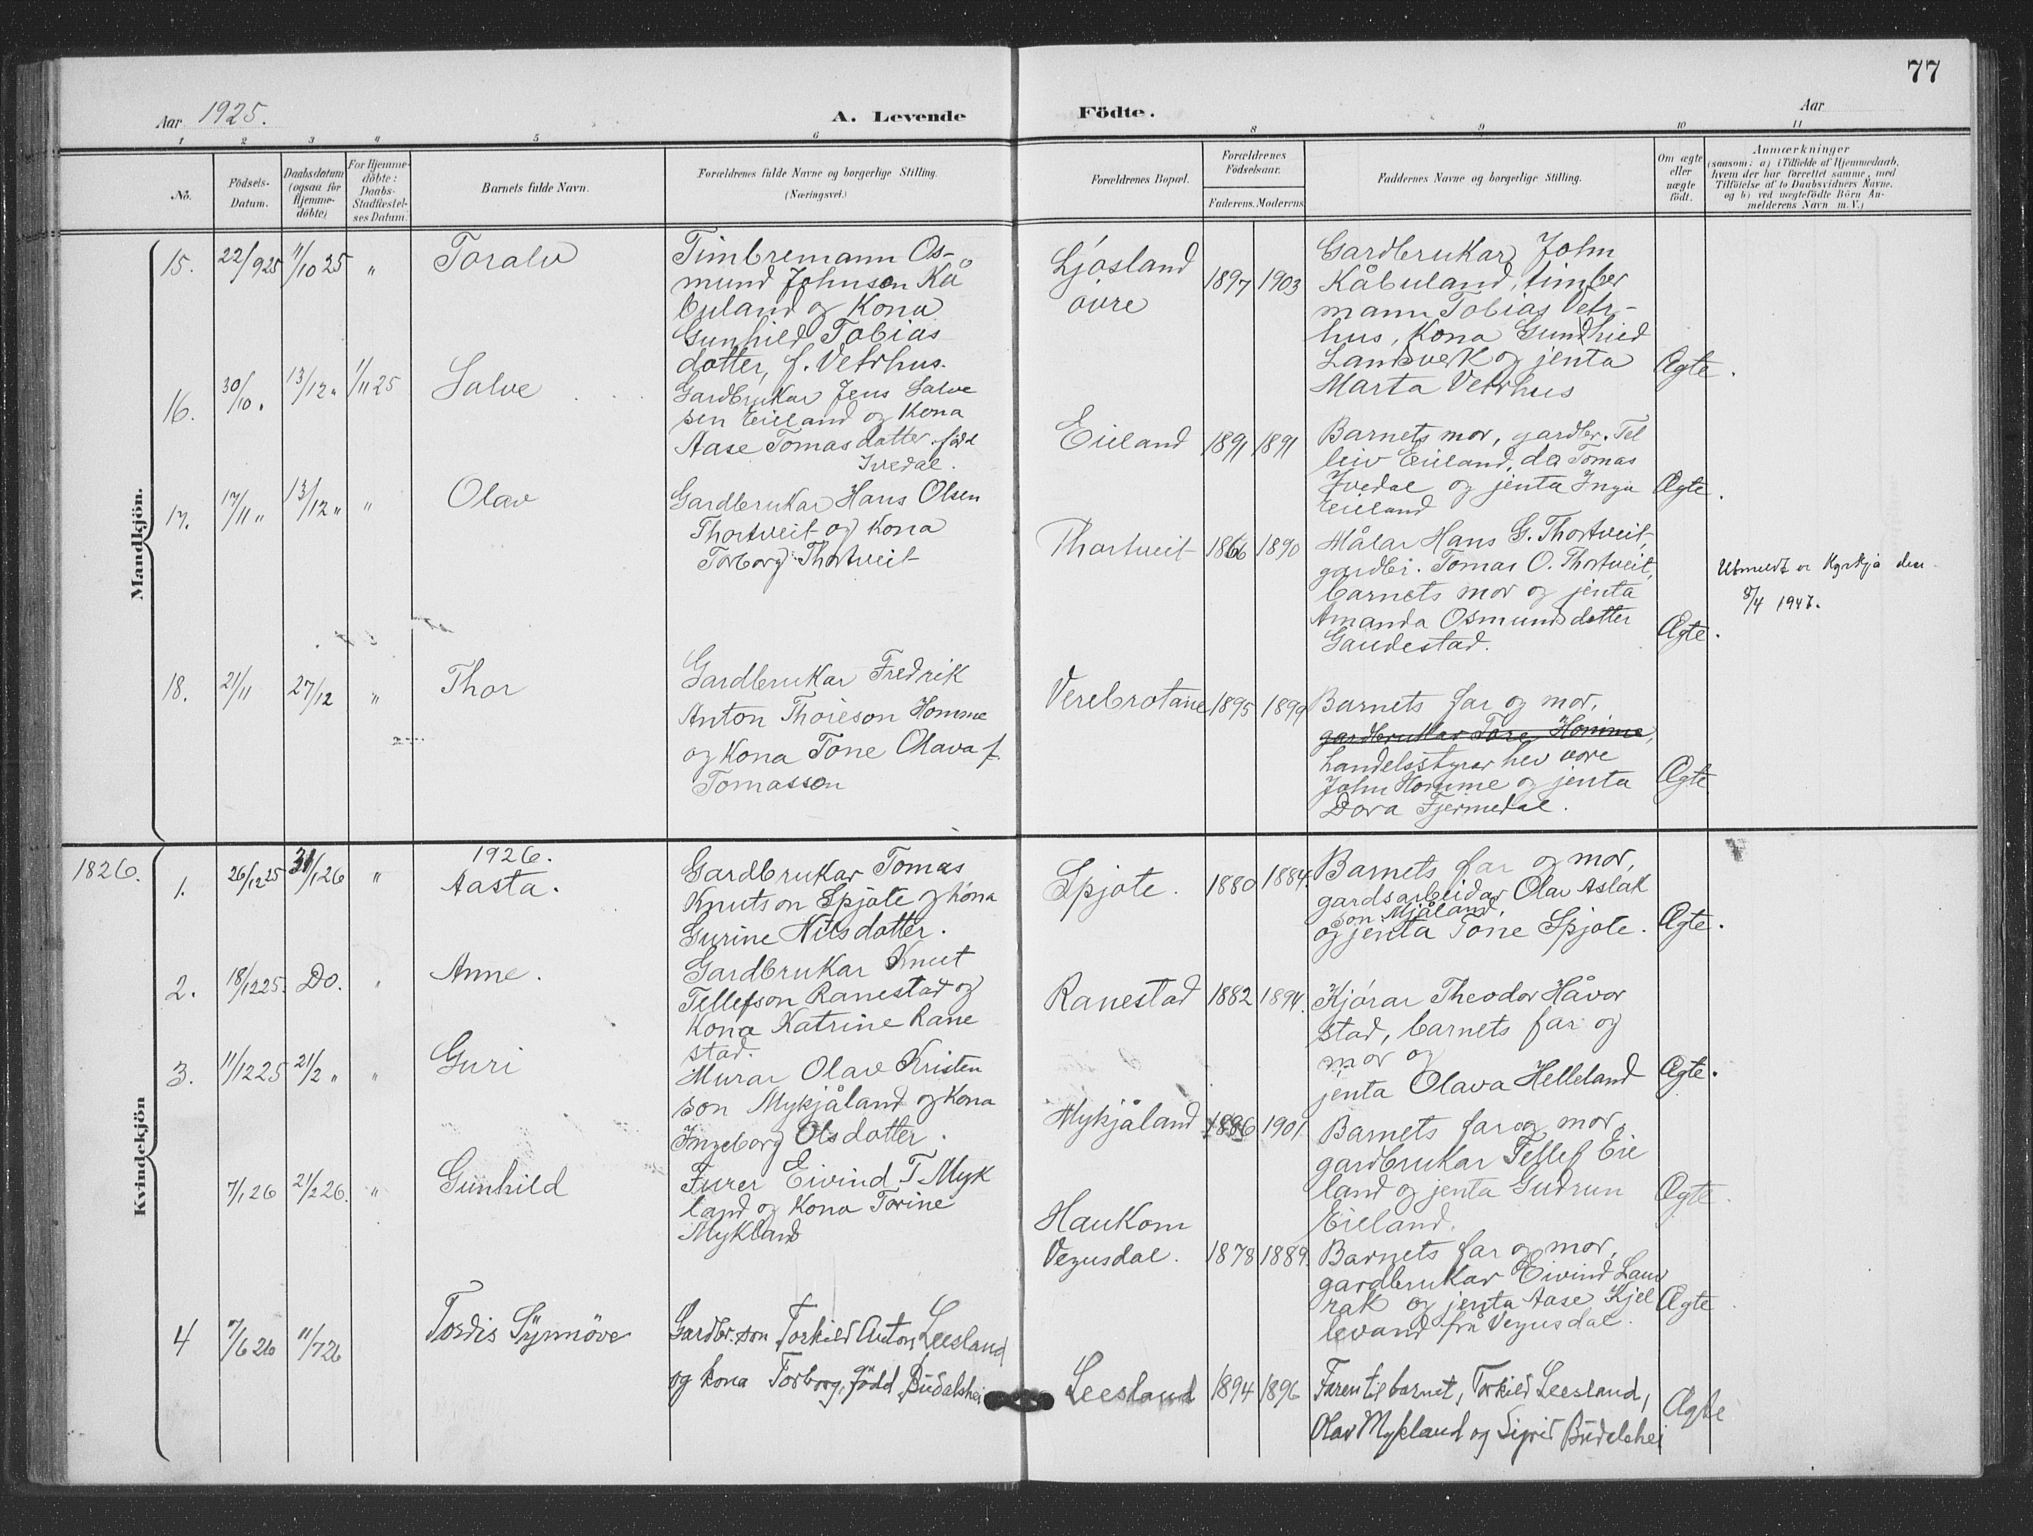 77
Aar 1925.
A. Levende Födte.
Aar
1 2 3 4 5 6 8 9 10 11
No.
Födsels-Datum.
Daabsdatum (ogsaa for Hjemme-döbte)
For Hjemme-döbte: Daabs-Stadfæstel-ses Datum.
Barnets fulde Navn.
Forældrenes fulde Navne og borgerlige Stilling.
(Næringsvei.)
Forældrenes Bopæl.
Forældrenes Födselsaar.
Faderens. Moderens.
Faddernes Navne og borgerlige Stilling.
Om ægte eller uægte födt.
Anmærkninger
(saasom: a) i Tilfælde af Hjemmedaab,
hvem der har forrettet samme, med
Tilföielse af to Daabsvidners Navne,
og b) ved uægtefödte Börn An-
melderens Navn m. V.)
Mandkjön.
15. 22/9 25 11/10 25 " Toralv
Timbremann Os-
mund Johnson Kå
buland og Kona
Gunhild Tobias
dotter, f. Vehrhus.
Ljósland
övre
1897 1903
Gardbrukar John
Kåbuland, timber
mann Tobias Vehr-
hus, Kona Gundhild
Landsverk og jenta
Marta Vehrhus
Ægte.
16. 30/10 " 13/12 " 1/11 25 Salve
Gardbrukar Jens Salve
sen Eieland og Kona
Aase Tomasdotter född
Ivedal.
Eieland
1891 1891
Barnets mor, gardbr. Tel
leiv Eieland, do Tomas
Ivedal og jenta Inga
Eieland
Ægte.
17. 17/11 " 13/12 " " Olav
Gardbrukar Hans Olsen
Thortveit og Kona
Torborg Thortveit
Thortveit
1866 1890
Målar Hans G. Thortveit,
gardbr. Tomas O. Thortveit,
barnets mor og jenta
Amanda Osmundsdotter
Gaudestad.
Ægte.
Utmeldt or Kyrkja den
8/4 1947.
18. 21/11 27/12 " Thor
Gardbrukar Fredrik
Anton Thoreson Homme
og Kona Tone Olava f.
Tomasson
Verebrotane
1895 1899
Barnets far og mor,
gardbrukar Tore Homme,
handelsstyrar hev vore
John Homme og jenta
Dora Fjermedal.
Ægte
1826.
Kvindekjön
1926.
1. 26/12 25 31/1 26 " Aasta.
Gardbrukar Tomas
Knutson Spjote og kona
Gurine Nilsdotter.
Spjote.
1880 1884.
Barnets far og mor,
gardsarbeidar Olav Aslak
son Mjåland,
og jenta Tone Spjote.
Ægte.
2. 18/12 25. Do. " Anne.
Gardbrukar Knut
Tellefson Ranestad og
Kona Katrine Rane
stad.
Ranestad
1882 1894.
Kjörar Theodor Håvor
stad, barnets far og
mor og
jenta Olava Helleland
Ægte.
3. 11/12 25 21/2 " " Guri
Murar Olav Kristen
son Mykjåland og Kona
Ingeborg Olsdotter.
Mykjåland
1886 1901
Barnets far og mor,
gardbrukar Tellef Eie
land og jenta Gudrun
Eieland.
Ægte.
7/1 26 21/2 26. " Gunhild
Furer Eivind T. Myk
land og Kona Torine
Mykland
Haukom
Vegusdal.
1878 1889.
Barnets far og mor,
gardbrukar Eivind Lauv
rak og jenta Aase Kjel
levand frå Vegusdal.
Ægte
4 7/6 26 11/7 26 Tordis Synnöve
Gardbr. son Torkild Anton Leesland
og kona Torborg, född Budalshei
Leesland
1894 1896
Faren til barnet, Torkild Leesland,
Olav Mykland og Sigrid Budalshei
Ægte